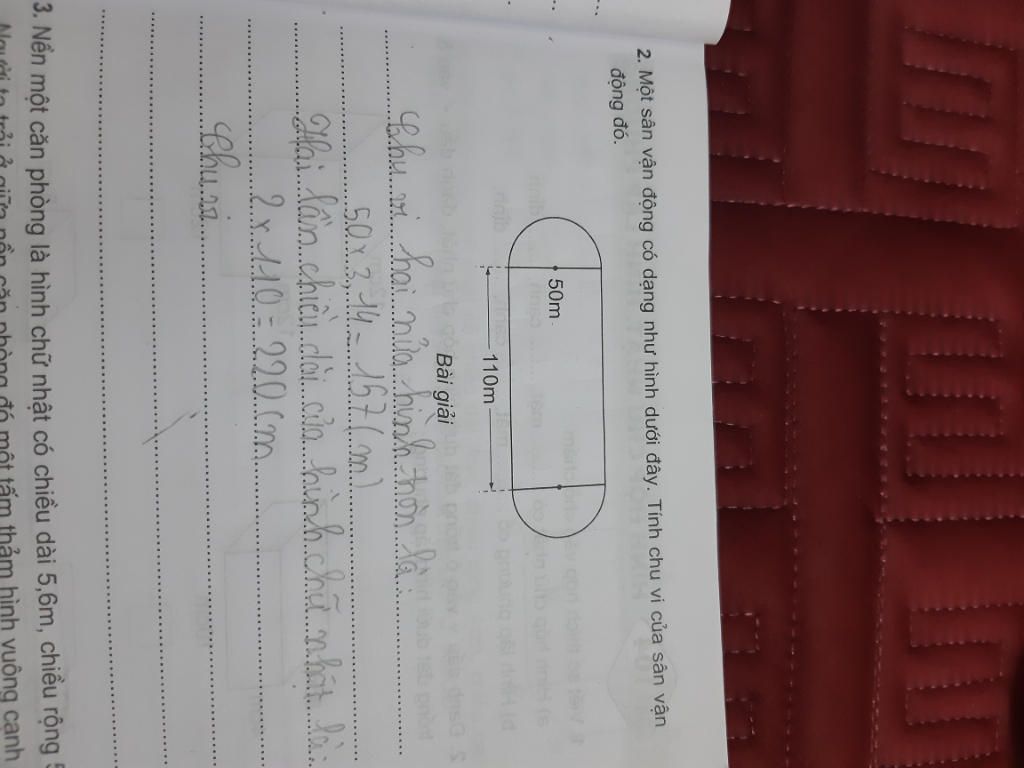 2. Một sân vận động có dạng như hình dưới đây. Tính chu vi của sân vận
động đó.
50m
110m
Bài giải
Chu vi hai nửa hình tròn là:
50 x 3,14 = 157 (m)
Hai lần chiều dài của hình chữ nhật là:
2 x 110 = 220 (m
Chu vi
3. Nền một căn phòng là hình chữ nhật có chiều dài 5,6m, chiều rộng 5
Người ta trải ở giữa nền căn phòng đó một tấm thảm hình vuông cạnh